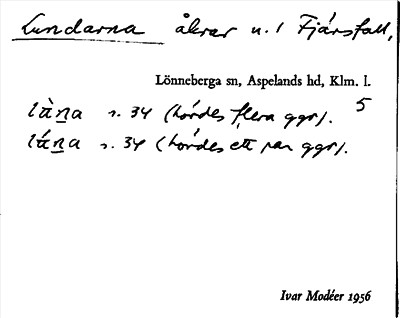 Lundarna åkrar u. 1 Fjärsfall,
Lönneberga sn, Aspelands hd, Klm. l.
5
lǜna s. 34 (hördes flera ggr).
lǘna s. 34 (hördes ett par ggr).
Ivar Modéer 1956